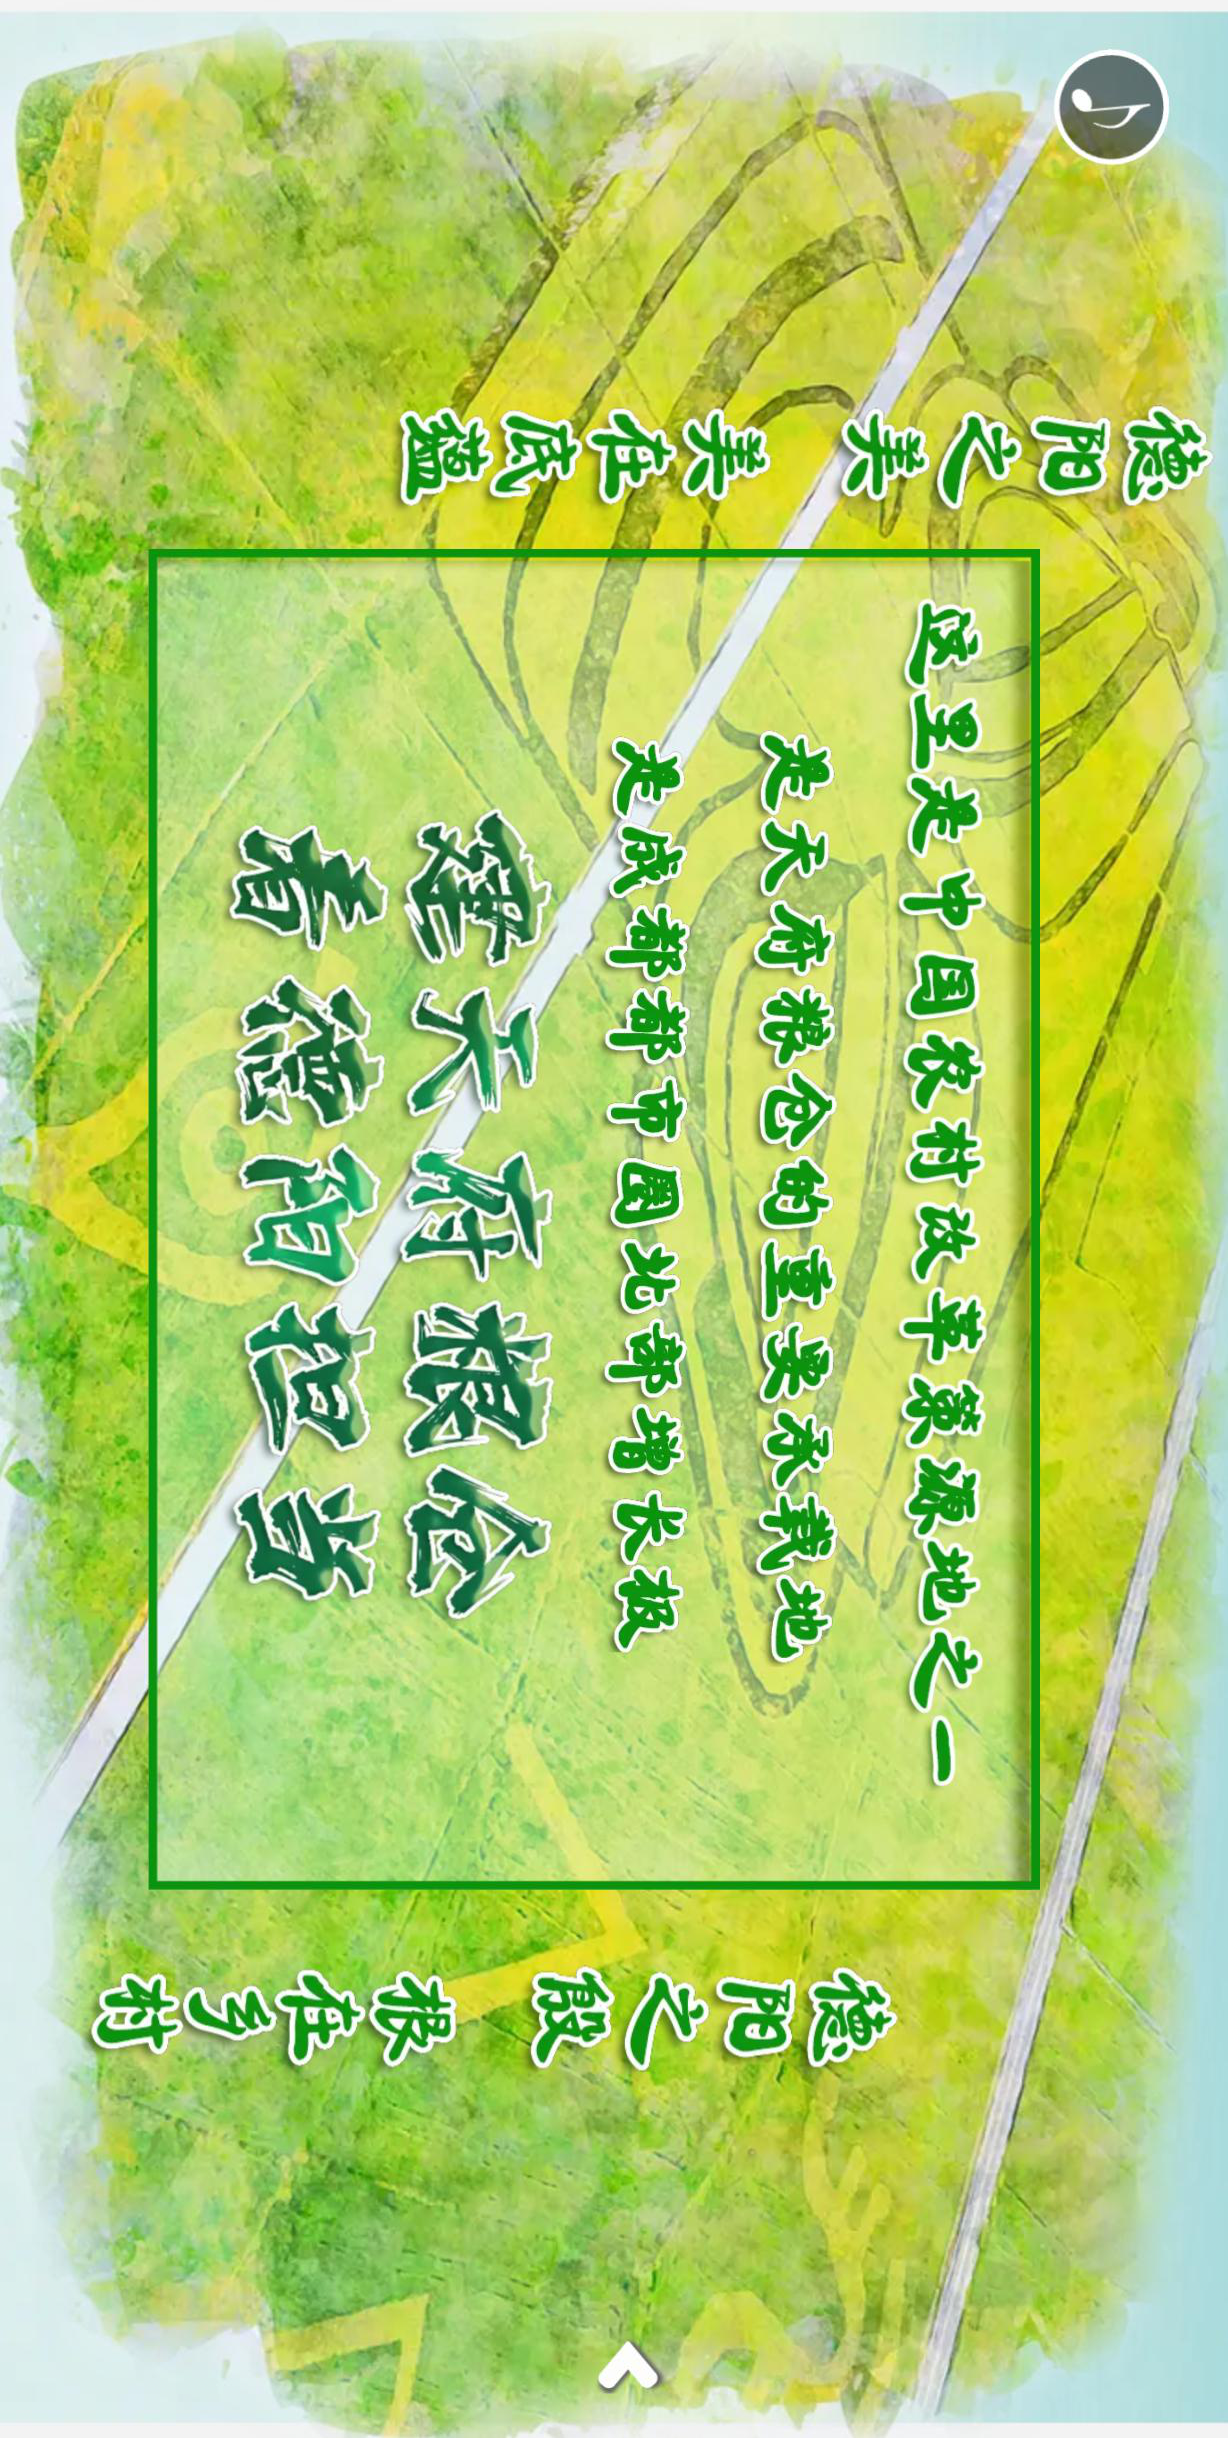 德阳之美 美在底蕴
这里是中国农村改革策源地之一
是天府粮仓的重要承载地
是成都都市圈北部增长极
建天府粮仓
看德阳担当
德阳之韵 根在乡村